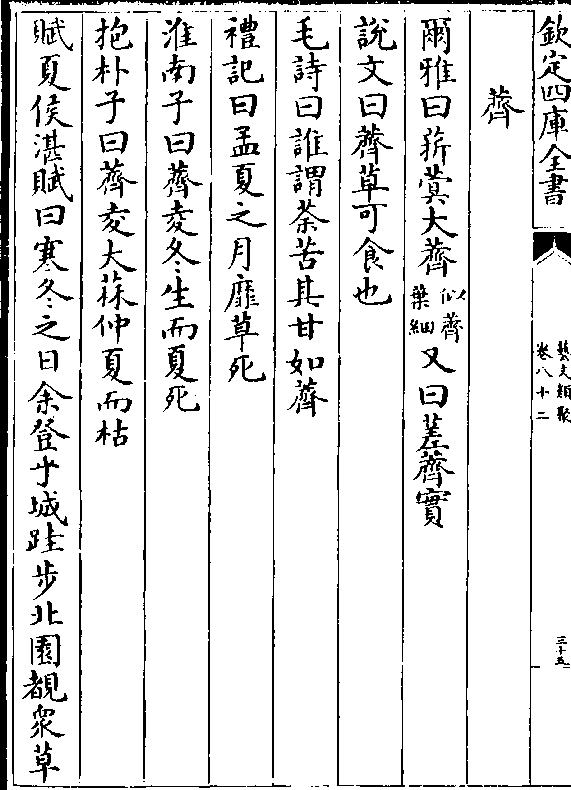 欽定四庫全書
藝文類聚
卷八十二
三十五
薺
爾雅曰菥蓂大薺似薺葉細又曰蒫薺實
說文曰薺草可食也
毛詩曰誰謂荼苦其甘如薺
禮記曰孟夏之月靡草死
淮南子曰薺麥冬生而夏死
抱朴子曰薺麥大蒜仲夏而枯
賦夏侯湛賦曰寒冬之日余登乎城跬步北園覩衆草